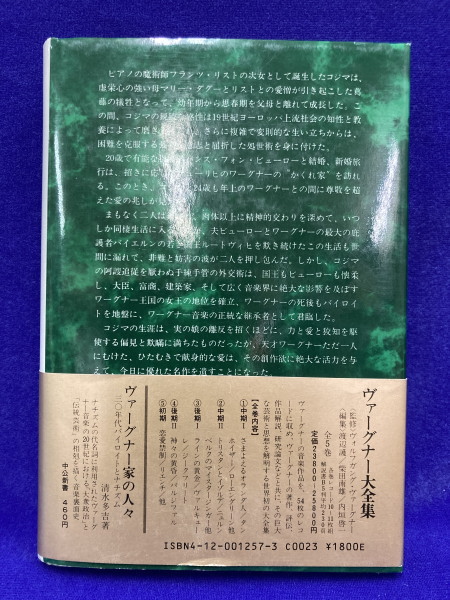 ピアノの魔術師フランツ・リストの次女として誕生したコジマは、
虚栄心の強い母マリー・ダグーとリストとの愛憎が引き起こした葛
藤の犠牲となって、幼年期から思春期を父母と離れて成長した。こ
の間、コジマの 性は19世紀ヨーロッパ上流社会の知性と
教養によって磨き さらに複雑で変則的な生い立ちからは、
困難を克服する 志と屈折した処世術を身に付けた。
20歳で有能な ンス・フォン・ビューローと結婚、新婚旅
行は、招きに ューリヒのワーグナーの“かくれ家”を訪れ
る。このとき、 24歳も年上のワーグナーとの間に尊敬を超
えた愛の兆しが見
まもなく二人は 肉体以上に精神的交わりを深めて、いつ
しか同棲生活に入る 夫ビューローとワーグナーの最大の庇
護者バイエルンの若き国王ルートヴィヒを欺き続けたこの生活も世
間に漏れて、非難と妨害の波が二人を押し包んだ。しかし、コジマ
の阿諛追従を厭わぬ手練手管の外交術は、国王もビューローも懐柔
し、大臣、富商、建築家、そして広く音楽界に絶大な影響を及ぼす
ワーグナー王国の女王の地位を確立、ワーグナーの死後もバイロイ
トを地盤に、ワーグナー音楽の正統な継承者として君臨した。
コジマの生涯は、実の娘の離反を招くほどに、力と愛と狡知を駆
使する偏見と欺瞞に満ちたものだったが、天才ワーグナーただ一人
にむけた、ひたむきで献身的な愛は、その創作欲に絶大な活力を与
えて、今日に優れた名作を遺すことになった。
ヴァーグナー大全集
〈監修〉ヴォルフガング・ヴァーグナー
〈編集〉渡辺護/柴田南雄/内垣啓一
全5巻
定価23800〜25800円
ヴァーグナーの音楽作品を、54枚のレコ
ードに収め、ヴァーグナーの著作、評伝、
作品解説、研究論文などと共に、その巨大
な芸術と思想を解明する世界初の大全集
【全巻内容】
①中期Ⅰ さまよえるオランダ人/タン
ホイザー/ローエングリーン/他
②中期Ⅱ トリスタンとイゾルデ/ニュルン
ベルクのマイスタージンガー/他
③後期Ⅰ ラインの黄金/ヴァルキュー
レ/ジークフリート
④後期Ⅱ 神々の黄昏/パルジファル
⑤初期 恋愛禁制/リエンツィ/他
ヴァーグナー家の人々
三〇年代バイロイトとナチズム
清水多吉著
ナチズムの代名詞に利用されたヴァーグ
ナー音楽の20年代における「大衆政治」と
「伝統芸術」の相剋を描く音楽裏面史。
中公新書 460円
ISBN4-12-001257-3 C0023 ¥1800E